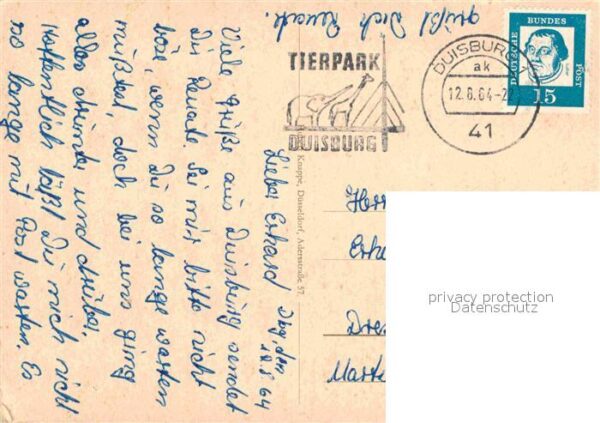 grüßt Dich Renate.
TIERPARK
DUISBURG
DUISBURG
ak
12.8.64-2
41
DEUTSCHE
BUNDES
POST
15
Dbg, den
12.8.64
Lieber Erhard
Viele Grüße aus Duisburg sendet
Dir Renate. Sei mir bitte nicht
böse, wenn Du so lange warten
mußtest, doch bei uns ging
alles drunter und drüber,
Hoffentlich läßt Du mich nicht
so lange mit Post warten. Es
Knuppe, Düsseldorf, Adersstraße 57.
Herr
Dres
privacy protection
Datenschutz